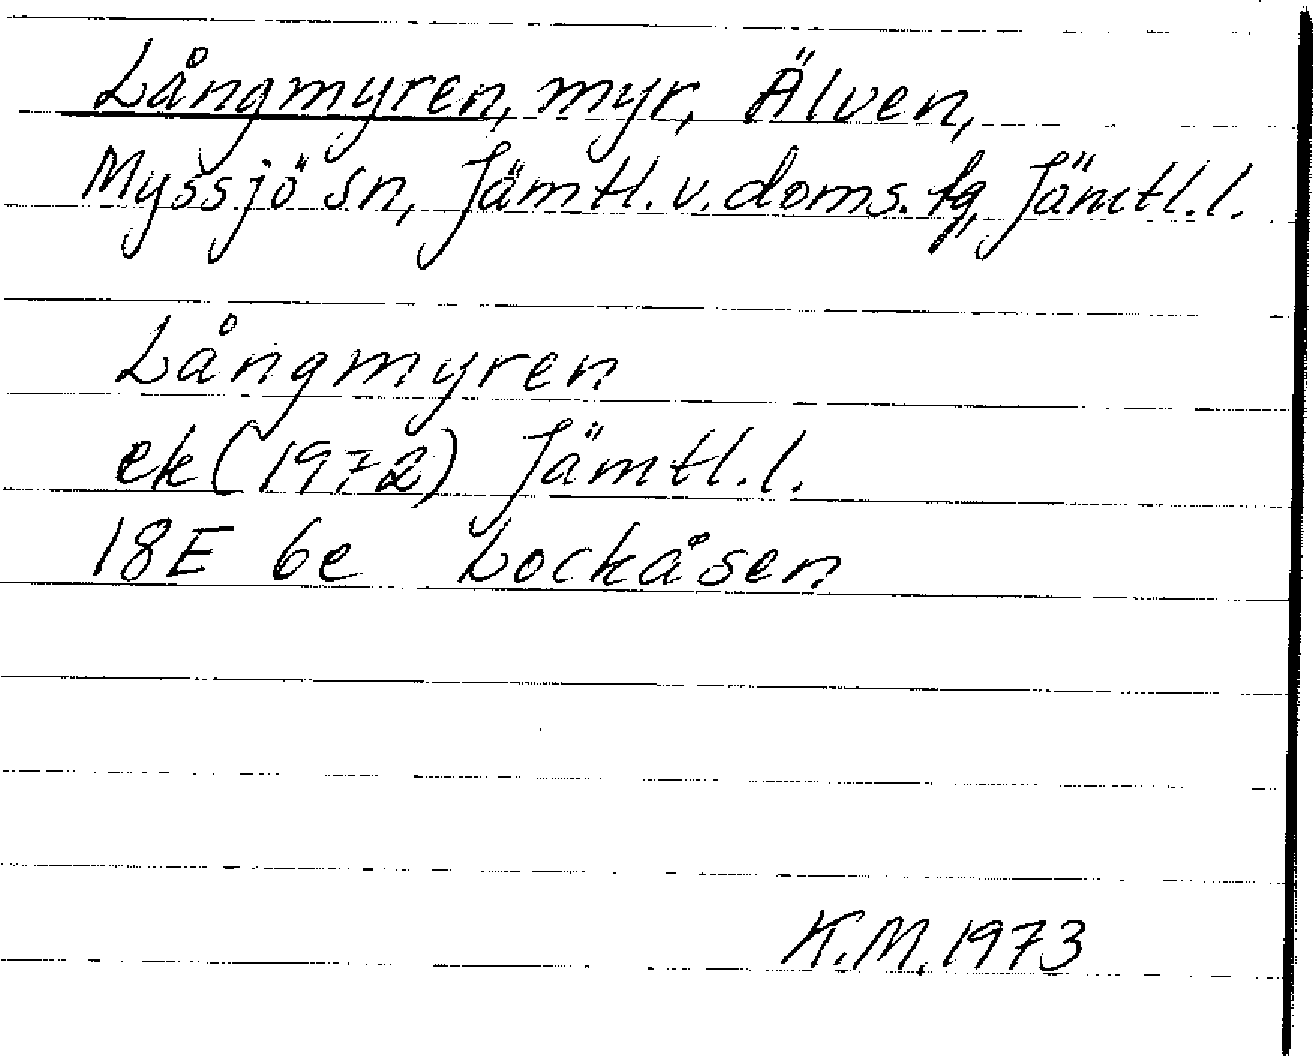 Långmyren, myr, Älven,
Myssjö sn, Jämtl.v.doms.fg, Jämtl.l.
Långmyren
ek(1972) Jämtl.l.
18E 6e Lockåsen
K.M.1973